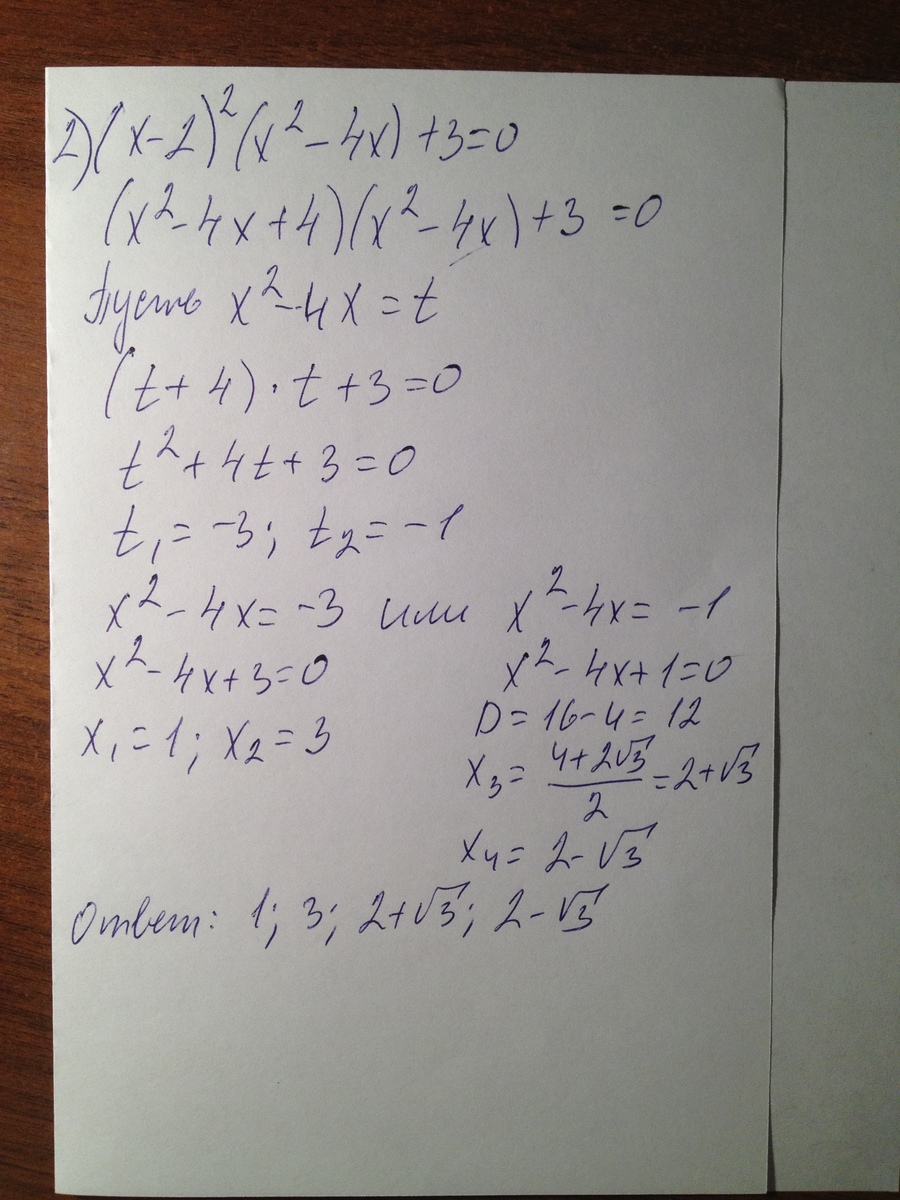 2) (x-2)² (x² - 4x) + 3 = 0
(x² - 4x + 4)(x² - 4x) + 3 = 0
Пусть x² - 4x = t
(t + 4) · t + 3 = 0
t² + 4t + 3 = 0
t₁ = -3; t₂ = -1
x² - 4x = -3 или x² - 4x = -1
x² - 4x + 3 = 0 x² - 4x + 1 = 0
x₁ = 1; x₂ = 3 D = 16 - 4 = 12
x₃ = (4 + 2√3)/2 = 2 + √3
x₄ = 2 - √3
Ответ: 1; 3; 2 + √3; 2 - √3